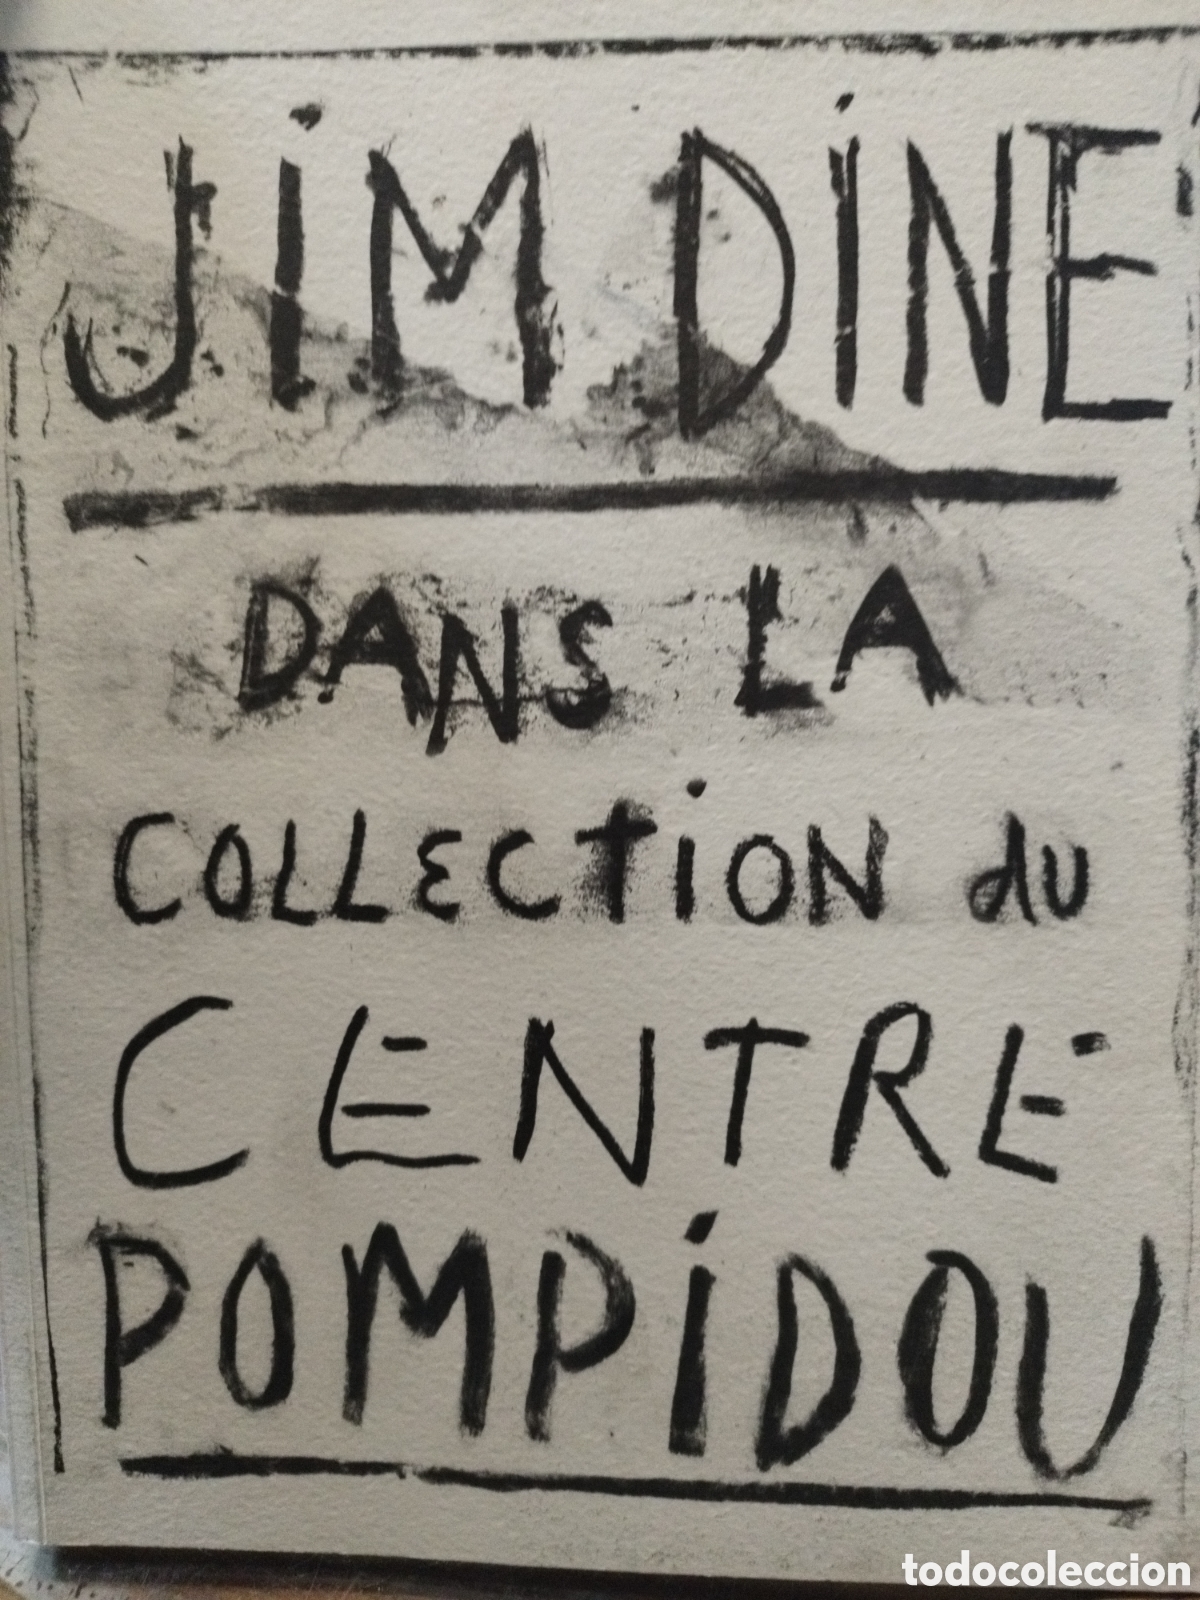 JiM DiNE
DANS LA
COLLECTiON du
CENTRE
POMPiDOU
todocoleccion